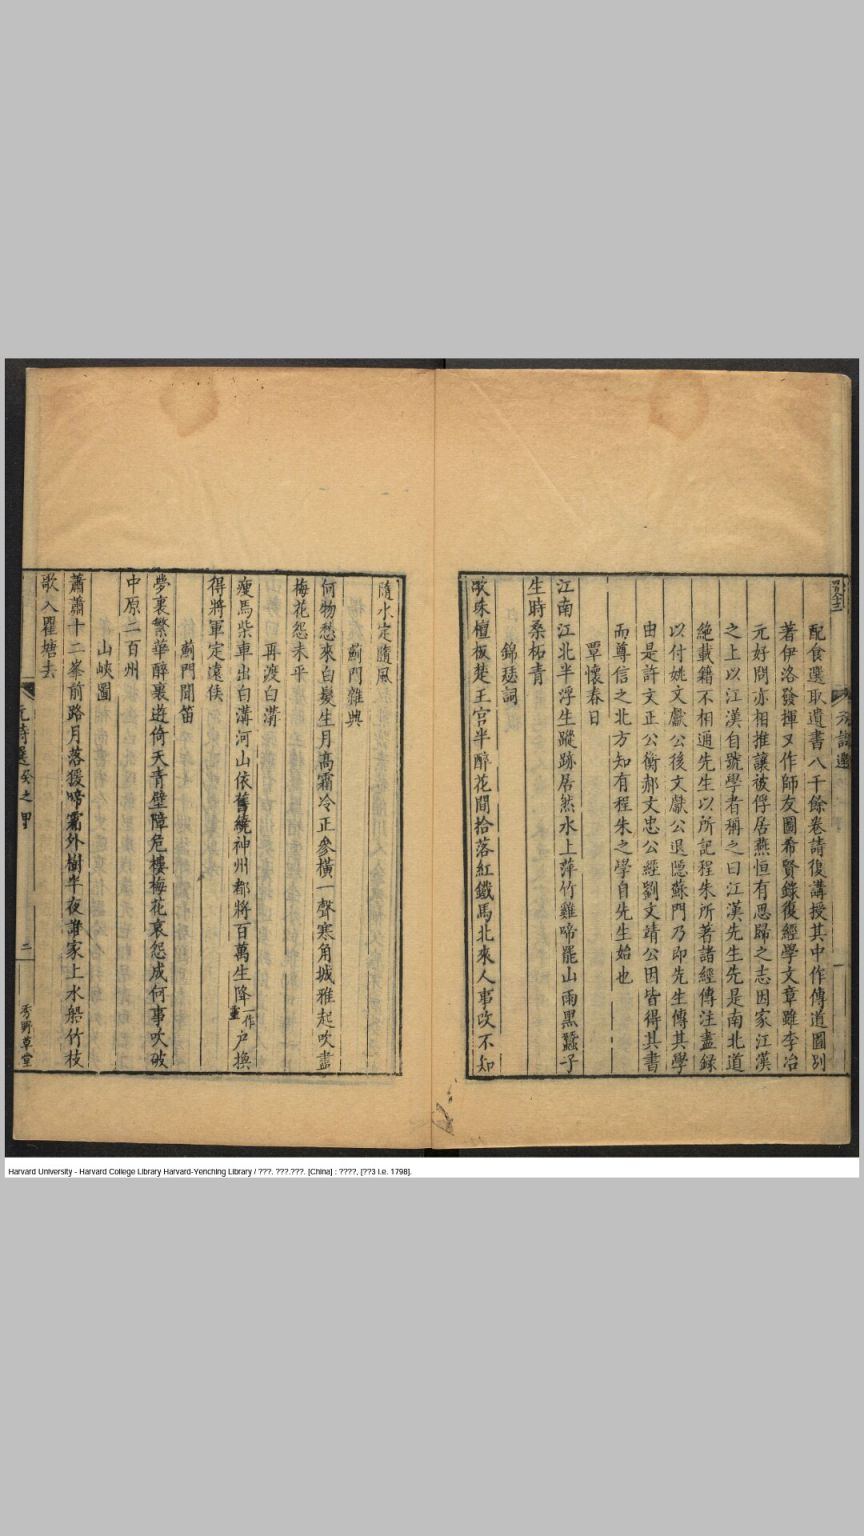 配食選取遺書八千餘卷請復講授其中作傳道圖別
著伊洛發揮又作師友圖希賢錄復經學文章雖李冶
元好問亦相推讓被俘居燕恒有思歸之志因家江漢
之上以江漢自號學者稱之曰江漢先生先是南北道
絕載籍不相通先生以所記程朱所著諸經傳注盡錄
以付姚文獻公後文獻公退隱蘇門乃即先生傳其學
由是許文正公衡郝文忠公經劉文靖公因皆得其書
而尊信之北方知有程朱之學自先生始也
覃懷春日
江南江北半浮生蹤跡居然水上萍竹雞啼罷山雨黑蠶子
生時桑柘青
錦瑟詞
歌珠檀板楚王宮半醉花間拾落紅鐵馬北來人事改不知
隨水定隨風
薊門雜興
何物愁來白髮生月高霜冷正參橫一聲寒角城雅起吹盡
梅花怨未平
再渡白溝
瘦馬柴車出白溝河山依舊繞神州都將百萬生降一作戶換
得將軍定遠侯
薊門聞笛
夢裏繁華醉裏遊倚天青壁障危樓梅花哀怨成何事吹破
中原二百州
山峽圖
蕭蕭十二峯前路月落猨啼霜外樹半夜誰家上水船竹枝
歌入瞿塘去
元詩選 癸之甲
二
秀野草堂
Harvard University - Harvard College Library Harvard-Yenching Library / ???. ???.???. [China] : ????, [??3 i.e. 1798].